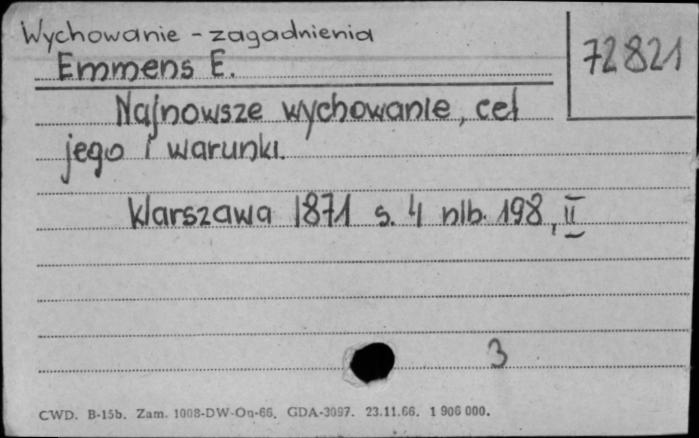 Wychowanie - zagadnienia
72821
Emmens E.
Najnowsze wychowanie, cel
jego i warunki.
Warszawa 1871 s. 4 nlb. 198, II
3
CWD. B-15b. Zam. 1008-DW-On-66. GDA-3097. 23.11.66. 1 906 000.